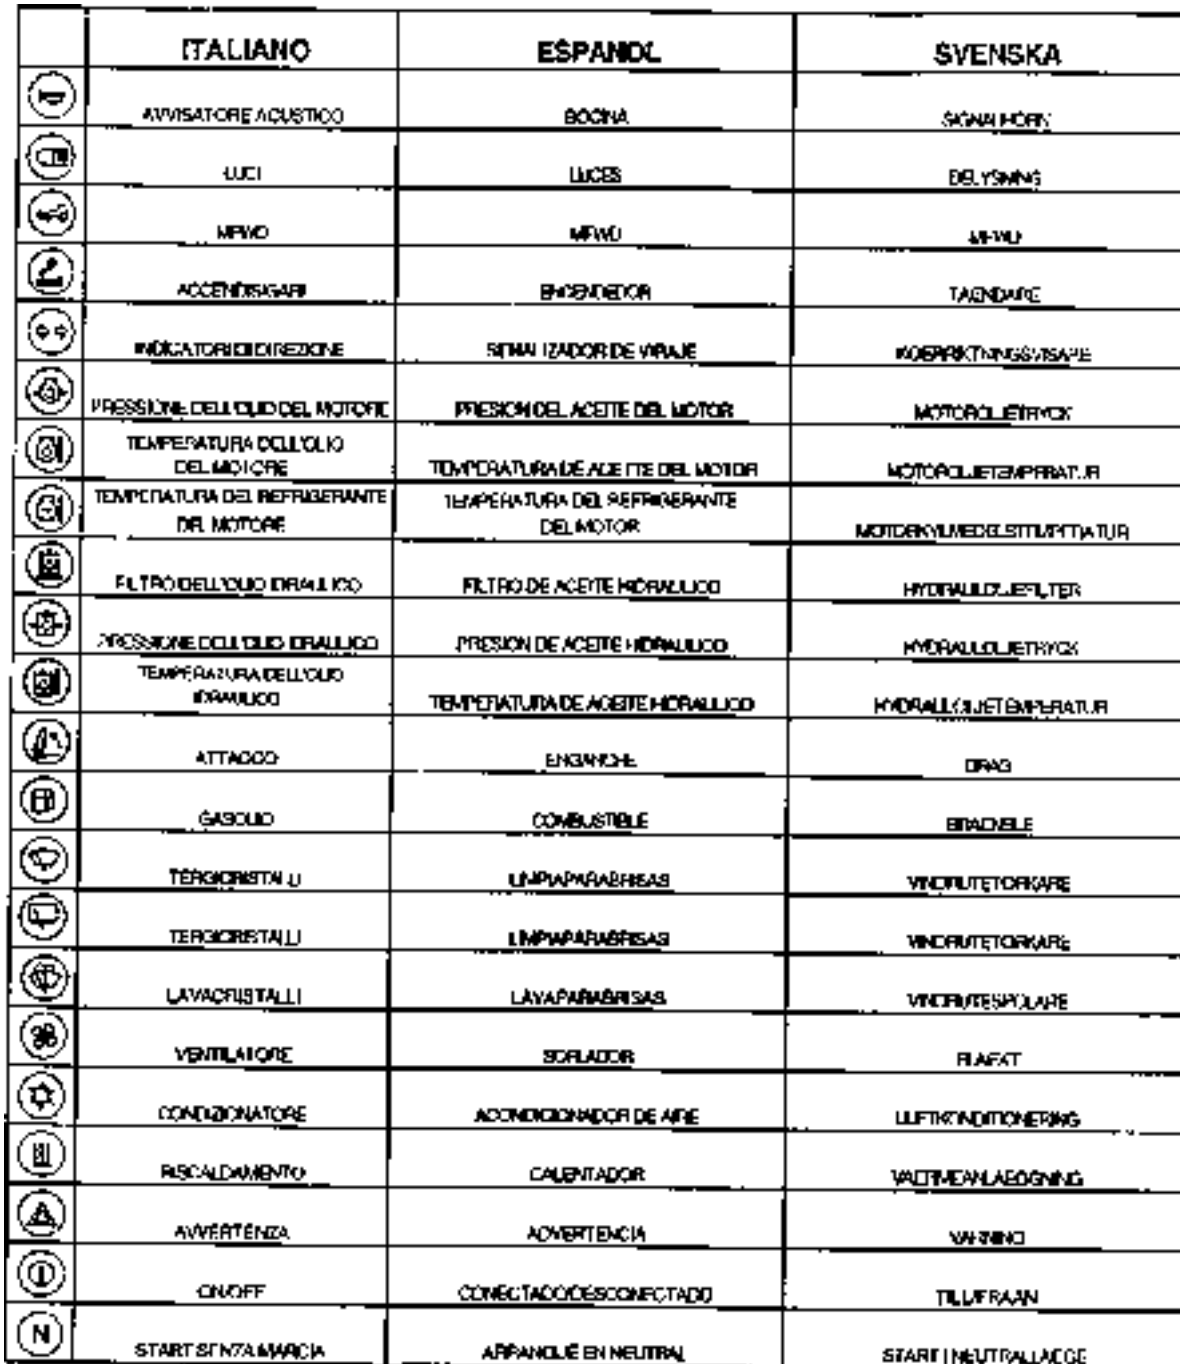 ITALIANO ESPANOL SVENSKA
AVVISATORE ACUSTICO BOCINA SIGNALHORN
LUCI LUCES BELYSNING
MFWD MFWD MFWD
ACCENDISIGARI ENCENDEDOR TAENDARE
INDICATORI DI DIREZIONE SENALIZADOR DE VIRAJE KOERRIKTNINGSVISARE
PRESSIONE DELL'OLIO DEL MOTORE PRESION DEL ACEITE DEL MOTOR MOTOROLJETRYCK
TEMPERATURA DELL'OLIO
DEL MOTORE TEMPERATURA DE ACEITE DEL MOTOR MOTOROLJETEMPERATUR
TEMPERATURA DEL REFRIGERANTE TEMPERATURA DEL REFRIGERANTE
DEL MOTORE DEL MOTOR
FILTRO DELL'OLIO IDRAULICO FILTRO DE ACEITE HIDRAULICO HYDRAULOLJEFILTER
PRESSIONE DELL'OLIO IDRAULICO PRESION DE ACEITE HIDRAULICO HYDRAULOLJETRYCK
TEMPERATURA DELL'OLIO
IDRAULICO TEMPERATURA DE ACEITE HIDRAULICO HYDRAULOLJETEMPERATUR
ATTACCO ENGANCHE DRAG
GASOLIO COMBUSTIBLE BRAENSLE
TERGICRISTALLI LIMPIAPARABRISAS VINDRUTETORKARE
TERGICRISTALLI LIMPIAPARABRISAS VINDRUTETORKARE
LAVACRISTALLI LAVAPARABRISAS VINDRUTESPOLARE
VENTILATORE SOPLADOR FLAEKT
CONDIZIONATORE ACONDICIONADOR DE AIRE LUFTKONDITIONERING
RISCALDAMENTO CALENTADOR VAERMEANLAEGGNING
AVVERTENZA ADVERTENCIA VARNING
ON/OFF CONECTADO/DESCONECTADO TILL/FRAAN
N START SENZA MARCIA ARRANQUE EN NEUTRAL START I NEUTRALLAEGE